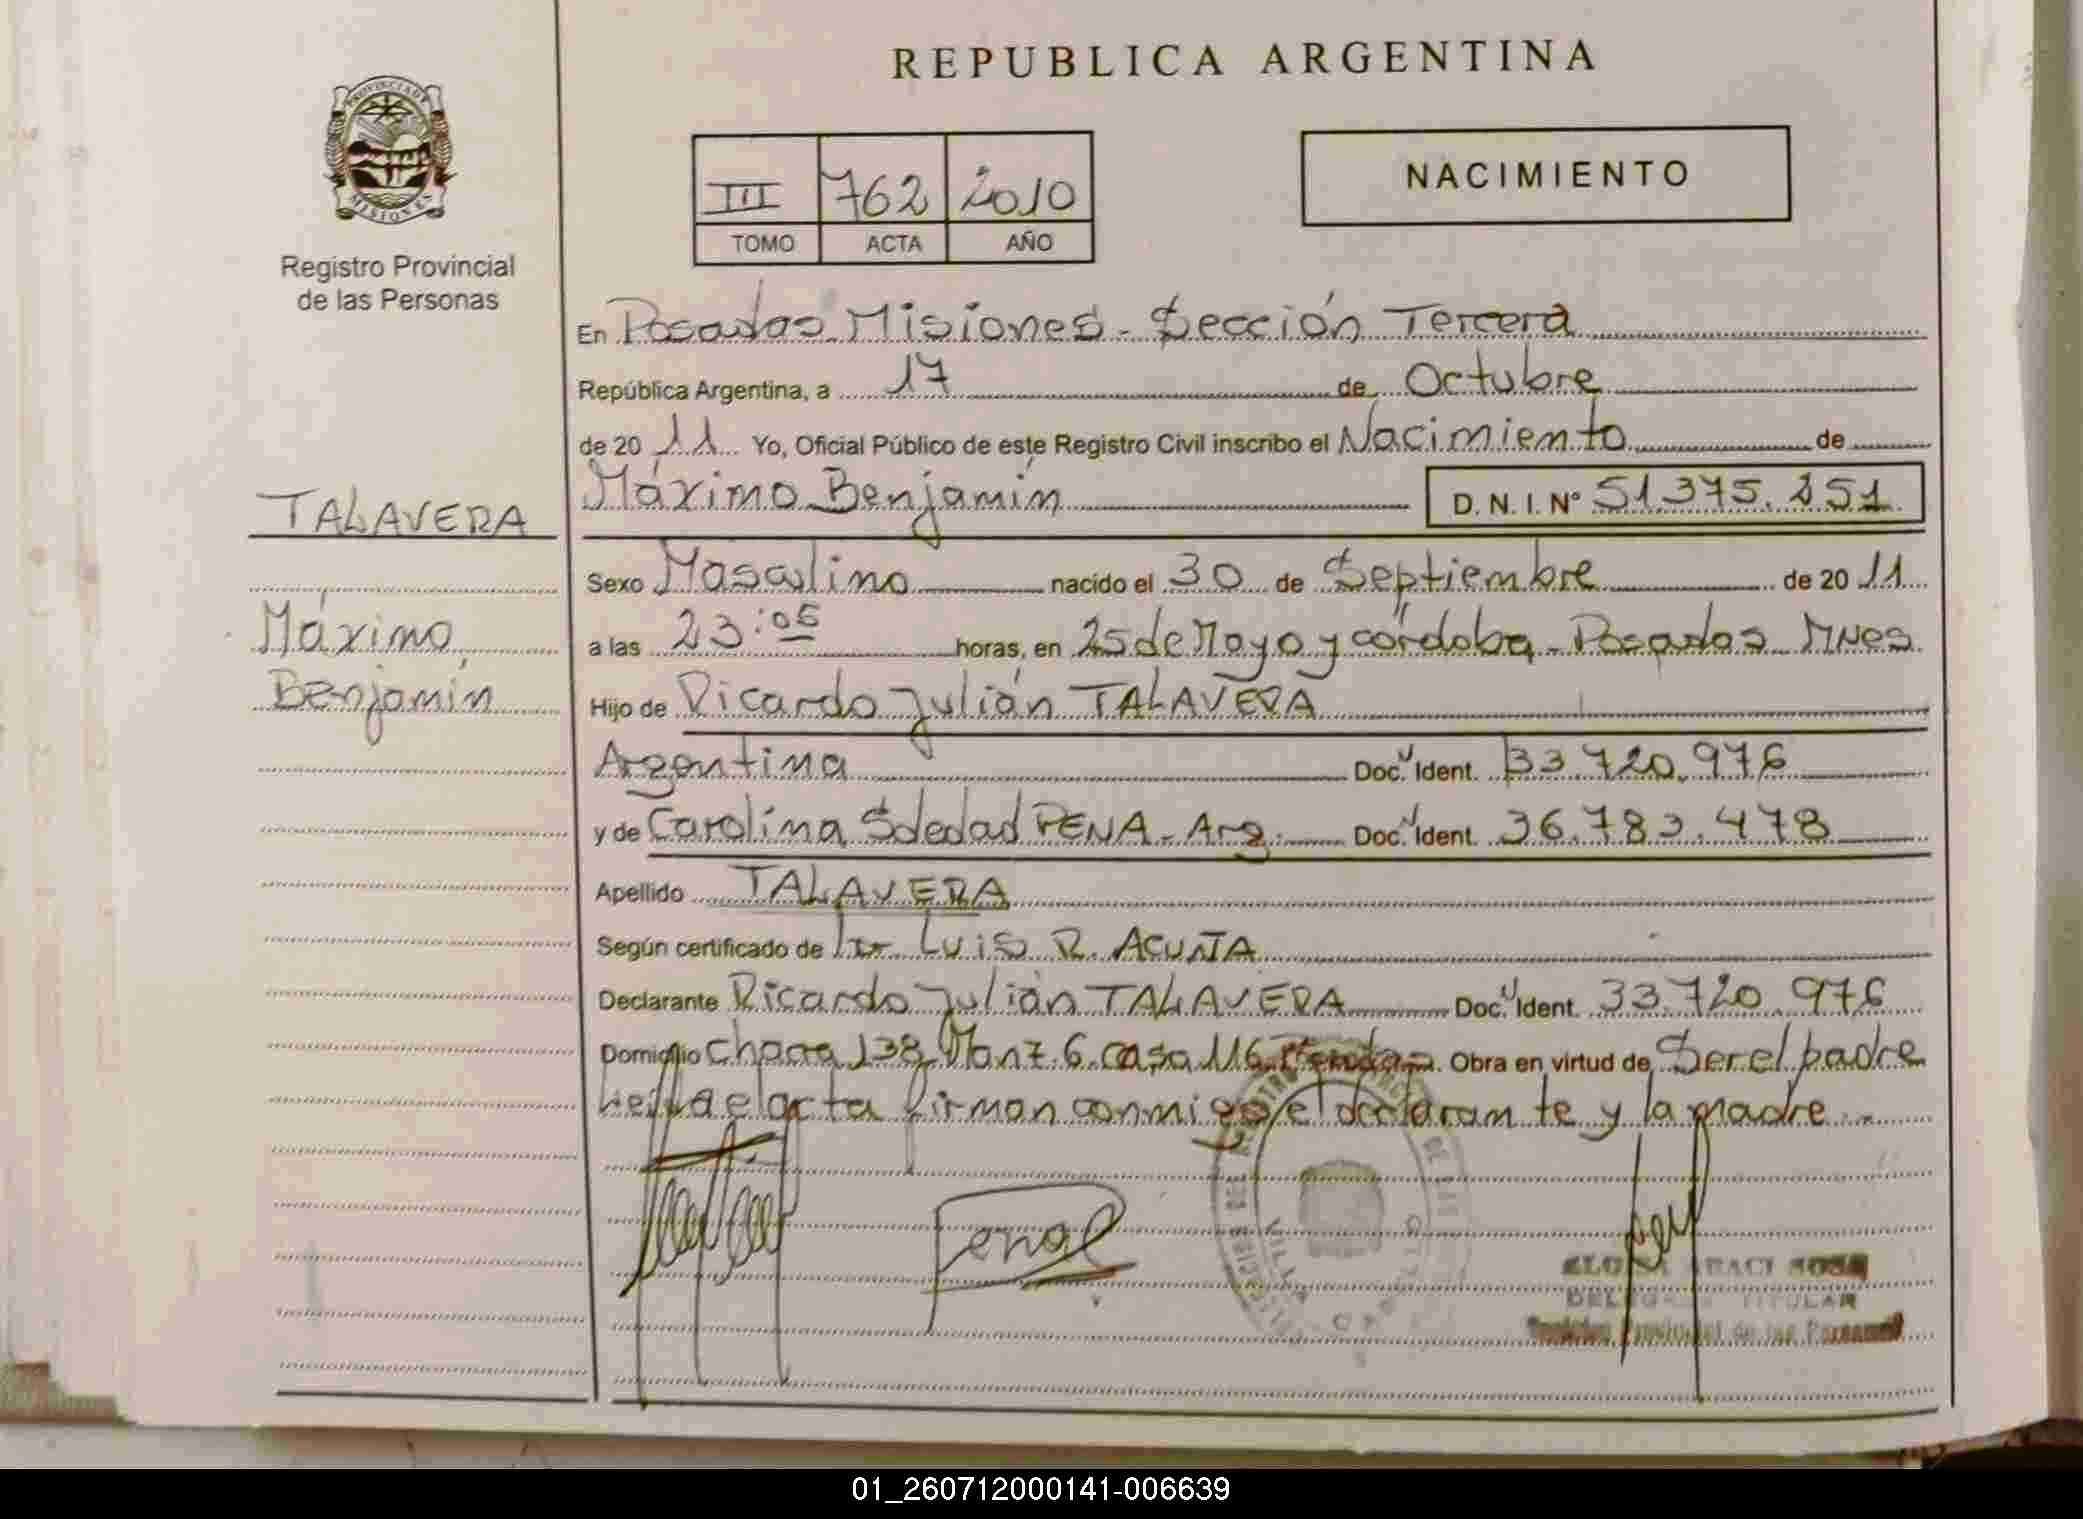 REPUBLICA ARGENTINA
PROVINCIA DE
MISIONES
Registro Provincial
de las Personas
III 762 2010
TOMO ACTA AÑO
NACIMIENTO
En Posadas Misiones - Sección Tercera
República Argentina, a 17 de Octubre
de 20 11 Yo, Oficial Público de este Registro Civil inscribo el Nacimiento de
Máximo Benjamín D. N. I. Nº 51.375.251
TALAVERA
Máximo
Benjamín
Sexo Masculino nacido el 30 de Septiembre de 20 11
a las 23:05 horas, en 25 de Mayo y córdoba - Posadas Mnes
Hijo de Ricardo Julián TALAVERA
Argentina Doc. Ident. 33.720.976
y de Carolina Soledad PENA - Arg. Doc. Ident. 36.783.478
Apellido TALAVERA
Según certificado de Dr. Luis R. ACUÑA
Declarante Ricardo Julián TALAVERA Doc. Ident. 33.720.976
Domicilio Chacra 138 Manz. 6 casa 116 Posadas. Obra en virtud de Ser el padre
Leída el acta firman conmigo el declarante y la madre.-
ARACI SOSA
TITULAR
Provincial de las Personas
01_260712000141-006639